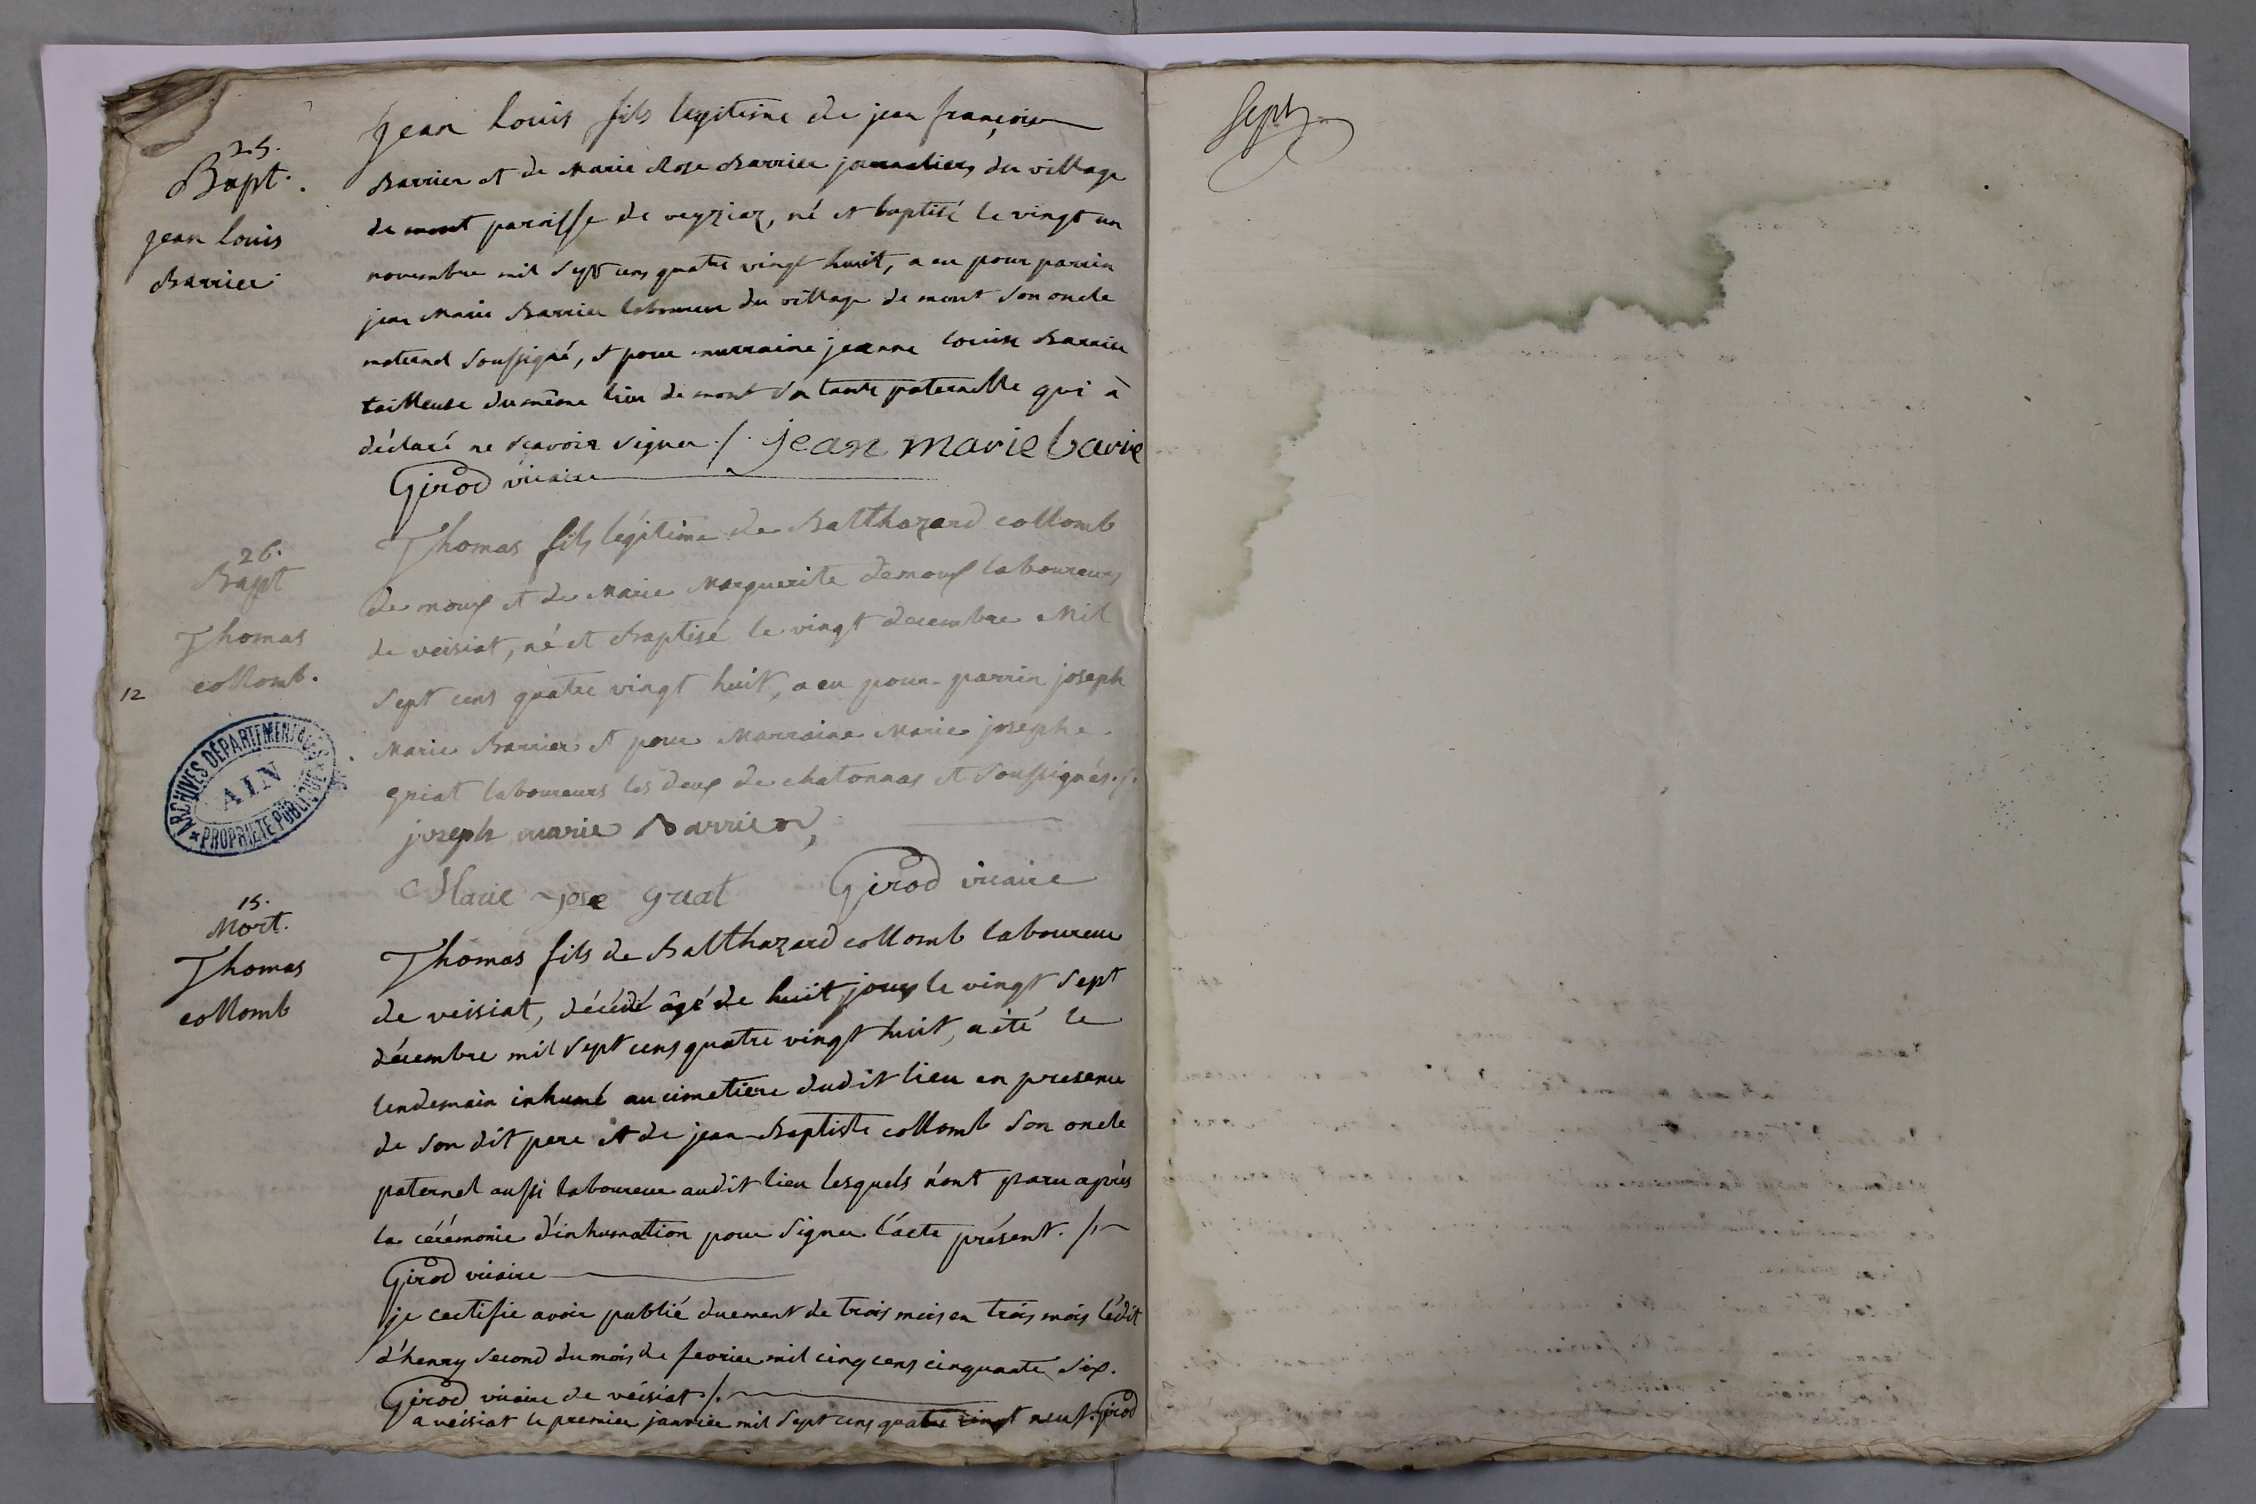 25.
Bapt.
jean louis
Barrier
jean louis fils legitime de jean françois
Barrier et de Marie Rose Barrier journaliers du village
de mont paroisse de veyziaz, né et baptisé le vingt un
novembre mil sept cens quatre vingt huit, a eu pour parrin
jean Marie Barrier laboureur du village de mont son oncle
maternel soussigné, et pour marraine jeanne louise Barrier
tailleuse du même lieu de mont sa tante paternelle qui à
déclaré ne scavoir signer ./. jean marie barie
Girod vicaire
26.
Bapt
Thomas
collomb.
12
Thomas fils légitime de Balthazard collomb
de moux et de Marie Marguerite demoux laboureurs
de veisiat, né et Baptisé le vingt decembre Mil
sept cens quatre vingt huit, a eu pour parrin joseph
Marie Barrier et pour Marraine Marie josephe
griat laboureurs les deux de chatonnas et soussignés ./.
joseph marie Barrier
Marie jose griat Girod vicaire
ARCHIVES DÉPARTEMENTALES
AIN
PROPRIÉTÉ PUBLIQUE
15.
Mort.
Thomas
collomb
Thomas fils de Balthazard collomb laboureur
de veisiat, décédé âgé de huit jours le vingt sept
décembre mil sept cens quatre vingt huit, a été le
lendemain inhumé au cimetiere dudit lieu en presence
de son dit pere et de jean-Baptiste collomb son oncle
paternel aussi laboureur audit lieu lesquels n'ont paru après
la cérémonie d'inhumation pour signer l'acte présent. /.
Girod vicaire
je certifie avoir publié duement de trois mois en trois mois l'édit
d'henry second du mois de fevrier mil cinq cens cinquante six.
Girod vicaire de veisiat ./.
a veisiat le premier janvier mil sept cens quatre vingt neuf. Girod
Sept